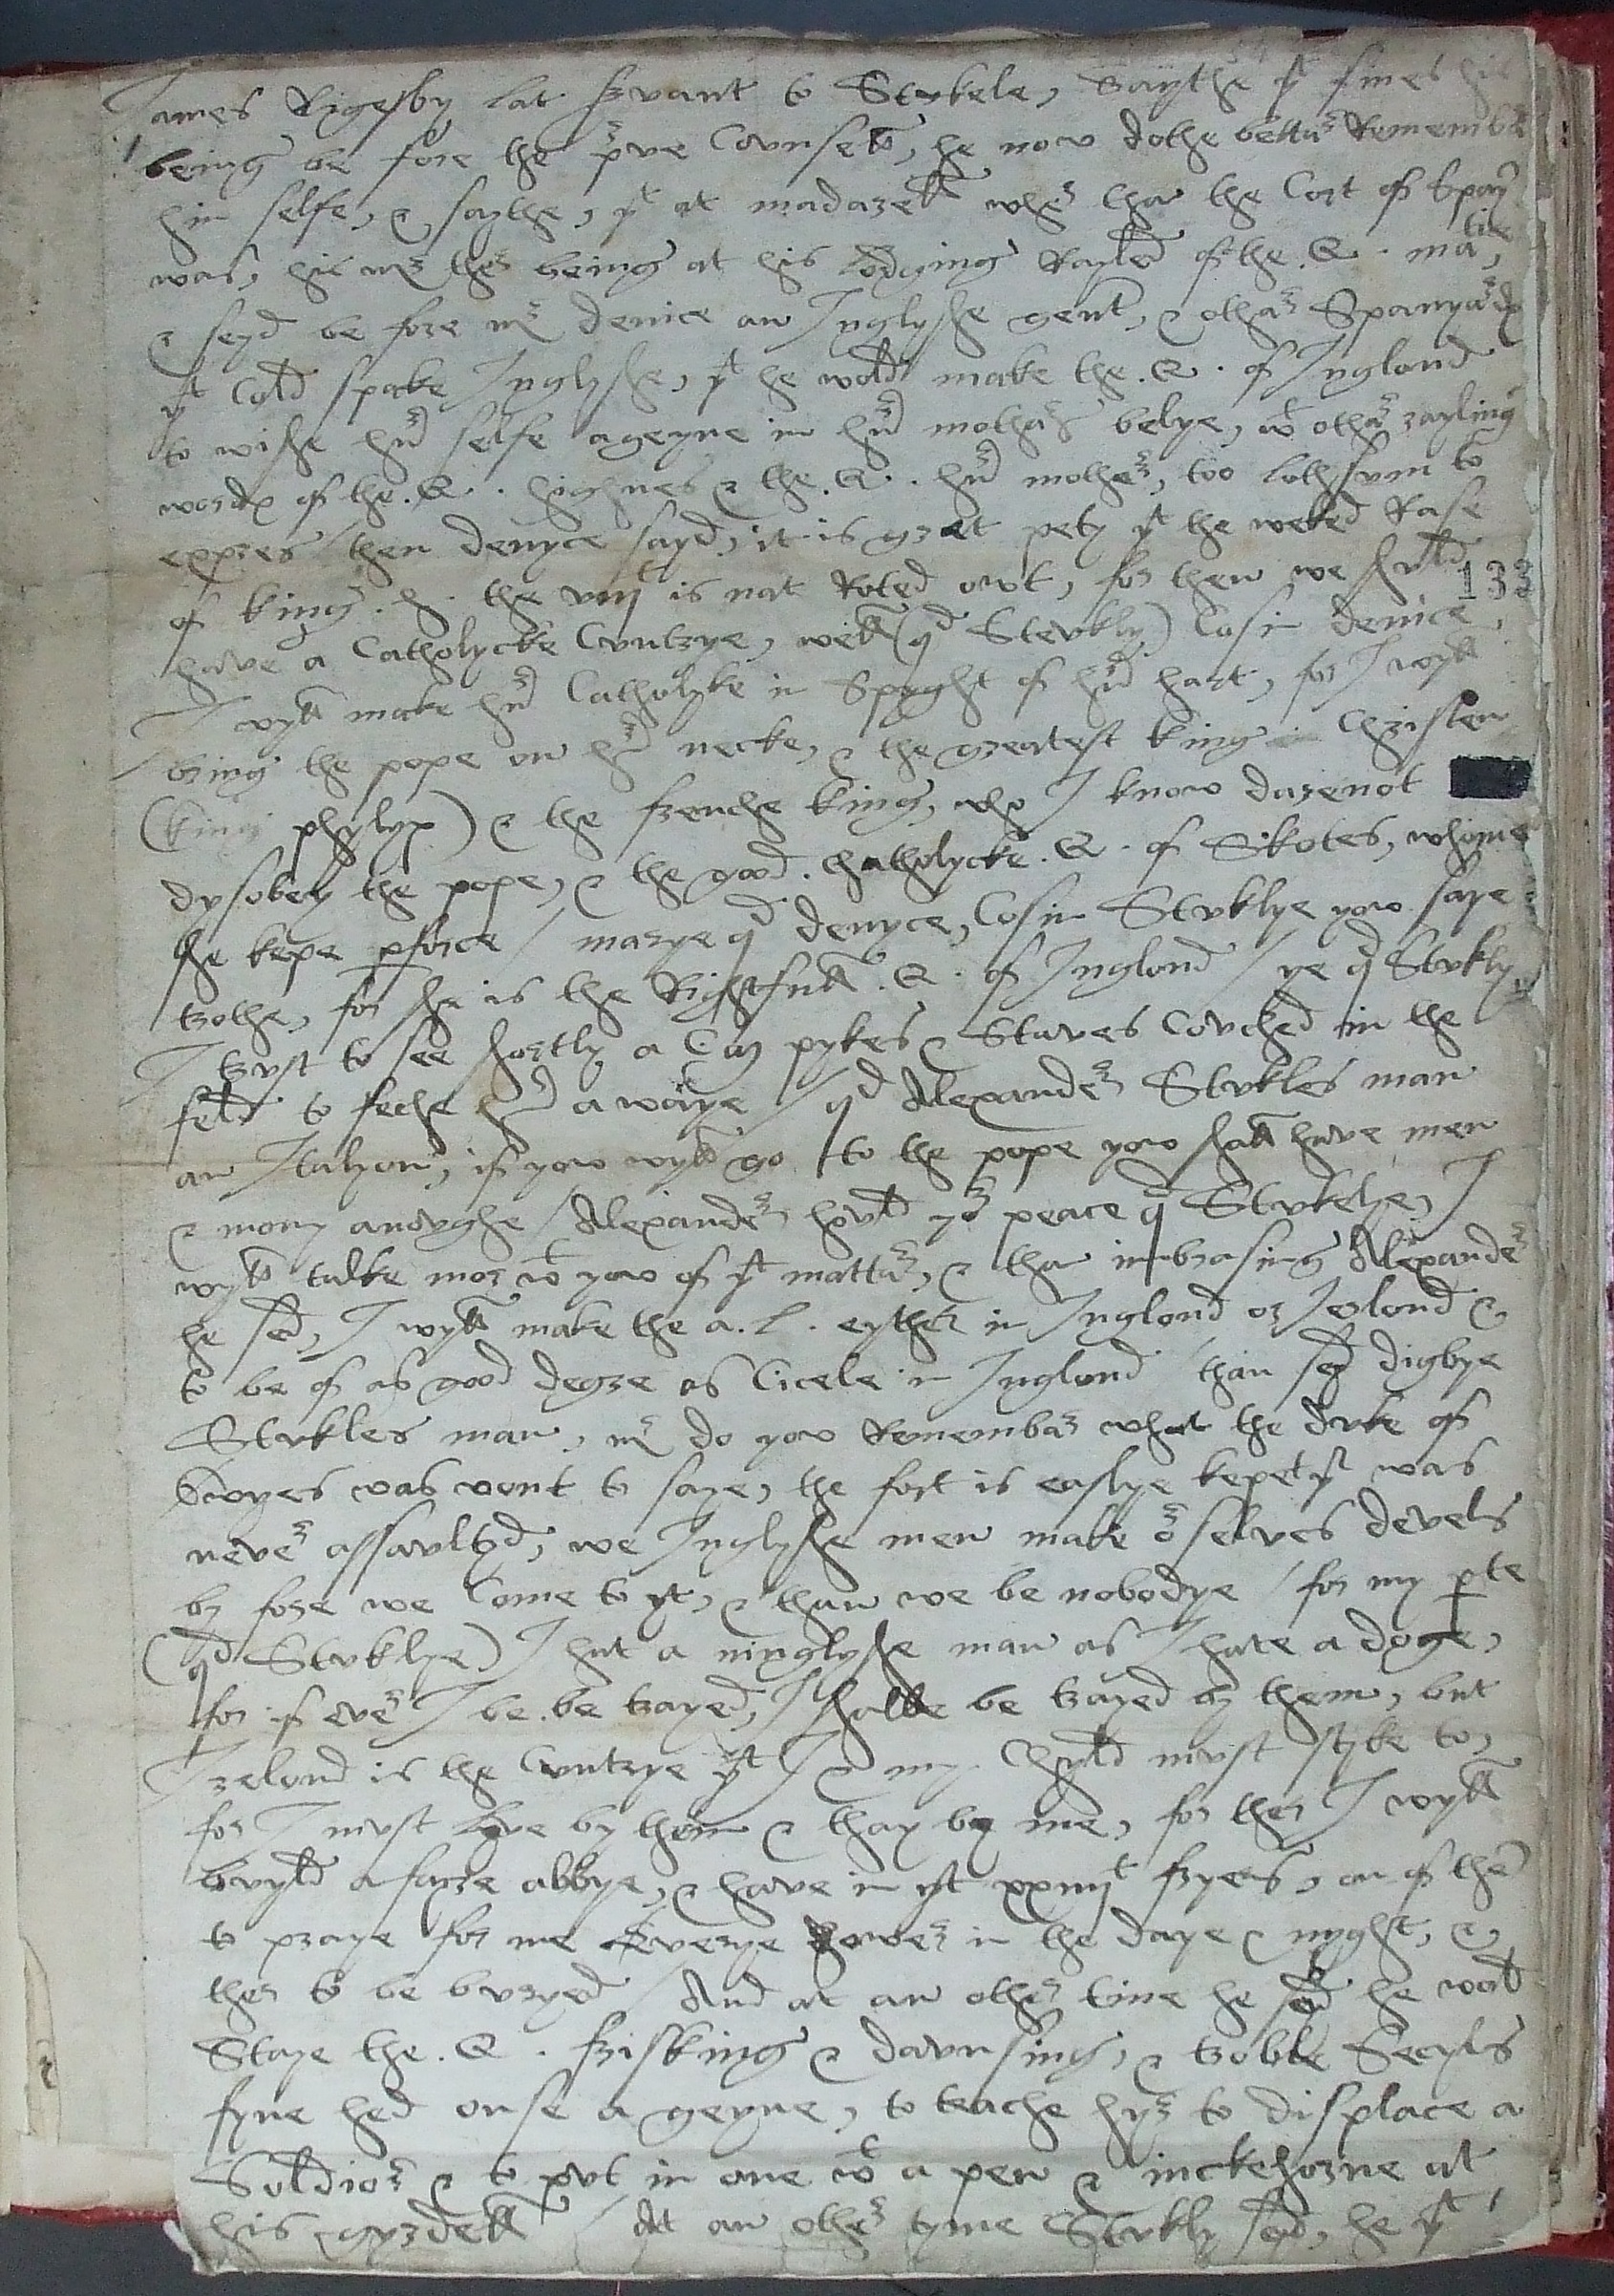 James Rigesby lat servant to Stukele, Saythe yt sines his
being be fore the prve Counsell, he now dothe bettar Remembar
him selfe, & saythe, yt at madarell whe thar the Cort of Spay
was, his mr ther being at his lodging Rayled of the .Q. matie,
& seyd be fore mr denice an Inglyshe gent, & othar Spanyards
yt Cold spake Inglyshe, yt he wold make the .Q. of Inglond
to wishe hur selfe ageyne in hur mothars belye, wt othar rayling
words of the .Q. highnes & the .Q. hur mother, too lothsum to
expres / then denyce sayd, it is gret pety yt the weked Rase
of king .h. the viijt is nat Roted owt, for then we shuld
133
have a Catholycke Cuntrye, well (qd Steukly) Cosin denice,
I wyll make hur Catholyke in Spyght of hur hart, for I wyll
bring the pope on hur necke, & the greatest king Christen
(king phylyp) & the frenche king, who I know darenot
dysobey the pope, & the good .Chatholycke .Q. of Skotes, whome
she kepe pforce / marye qd denyce, Cosin Stuklye yow saye
trothe, for she is the Rightfull .Q. of Inglond / ye qd Stukly
I trust to see shortly a C m pykes & Staves Couched in the
feld to feche hur awaye / qd Alexander Stukles man
an Italyon, if yow wyll go to the pope yow shall have men
& mony anoughe / Alexander hould yor peace qd Stukelye, I
wyll talke mor wt yow of yt mattar, & than imbrasing Alexander
he sed, I wyll make the a .l. eyther in Inglond or Ierlond &
to be of as good degre as Cicele in Inglond / than seyd digbye
Stukles man, mr do yow Remembar what the duke of
Swyes was wont to saye, the fort is easlye kepet yt was
never assaulted, we Inglyshe men make or selves devels
by fore we Come to yt, & than we be nobodye / for my pte
(qd Stuklye) I hat a ninglyshe man as I hate a doge,
for if ever I be.be trayed, I shalbe be trayed by them, but
Irelond is the Cuntrye yt I & my Chyld must styke to,
for I must lyve by them & thay by me, for ther I wyll
buyld a farre abbye, & have in yt xxiiijt fryers, on of the
to praye for me Everye hower in the daye & nyght, &
ther to be burryed / And at an other time he seyd he wold
Staye the .Q. frisking & daunsing, & troble Secyls
fyne hed onse a geyne, to teache hyr to displace a
Soldior & to put in one wt a pen & inckehorne at
his gyrdell / At an other tyme Stukly seyd, he yt